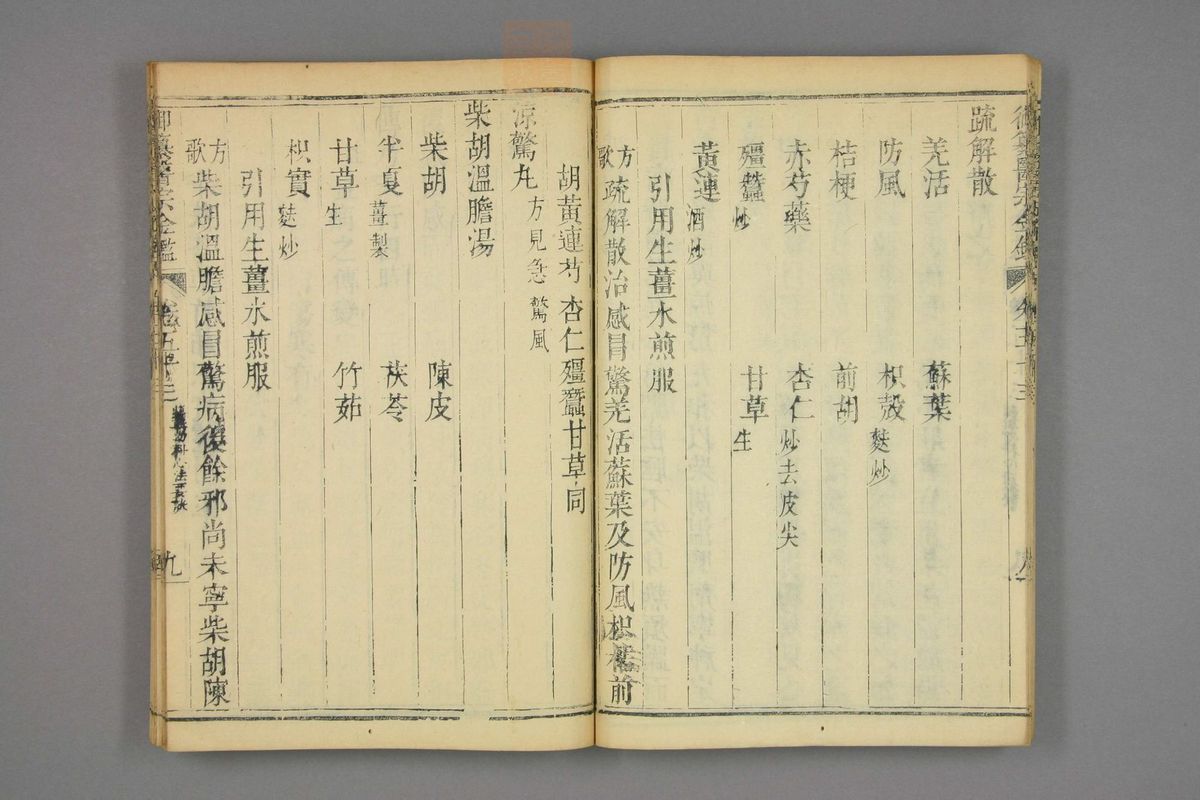 疏解散
羌活　蘇葉
防風　枳殼麩炒
桔梗　前胡
赤芍藥　杏仁炒去皮尖
殭蠶炒　甘草生
黃連酒炒
引用生薑水煎服
方歌　疏解散治感冒驚羌活蘇葉及防風枳桔前
胡黃連芍杏仁殭蠶甘草同
涼驚丸方見急驚風
柴胡溫膽湯
柴胡　陳皮
半夏薑製　茯苓
甘草生　竹茹
枳實麩炒
引用生薑水煎服
方歌　柴胡溫膽感冒驚病後餘邪尚未寧柴胡陳
御纂醫宗金鑑
九